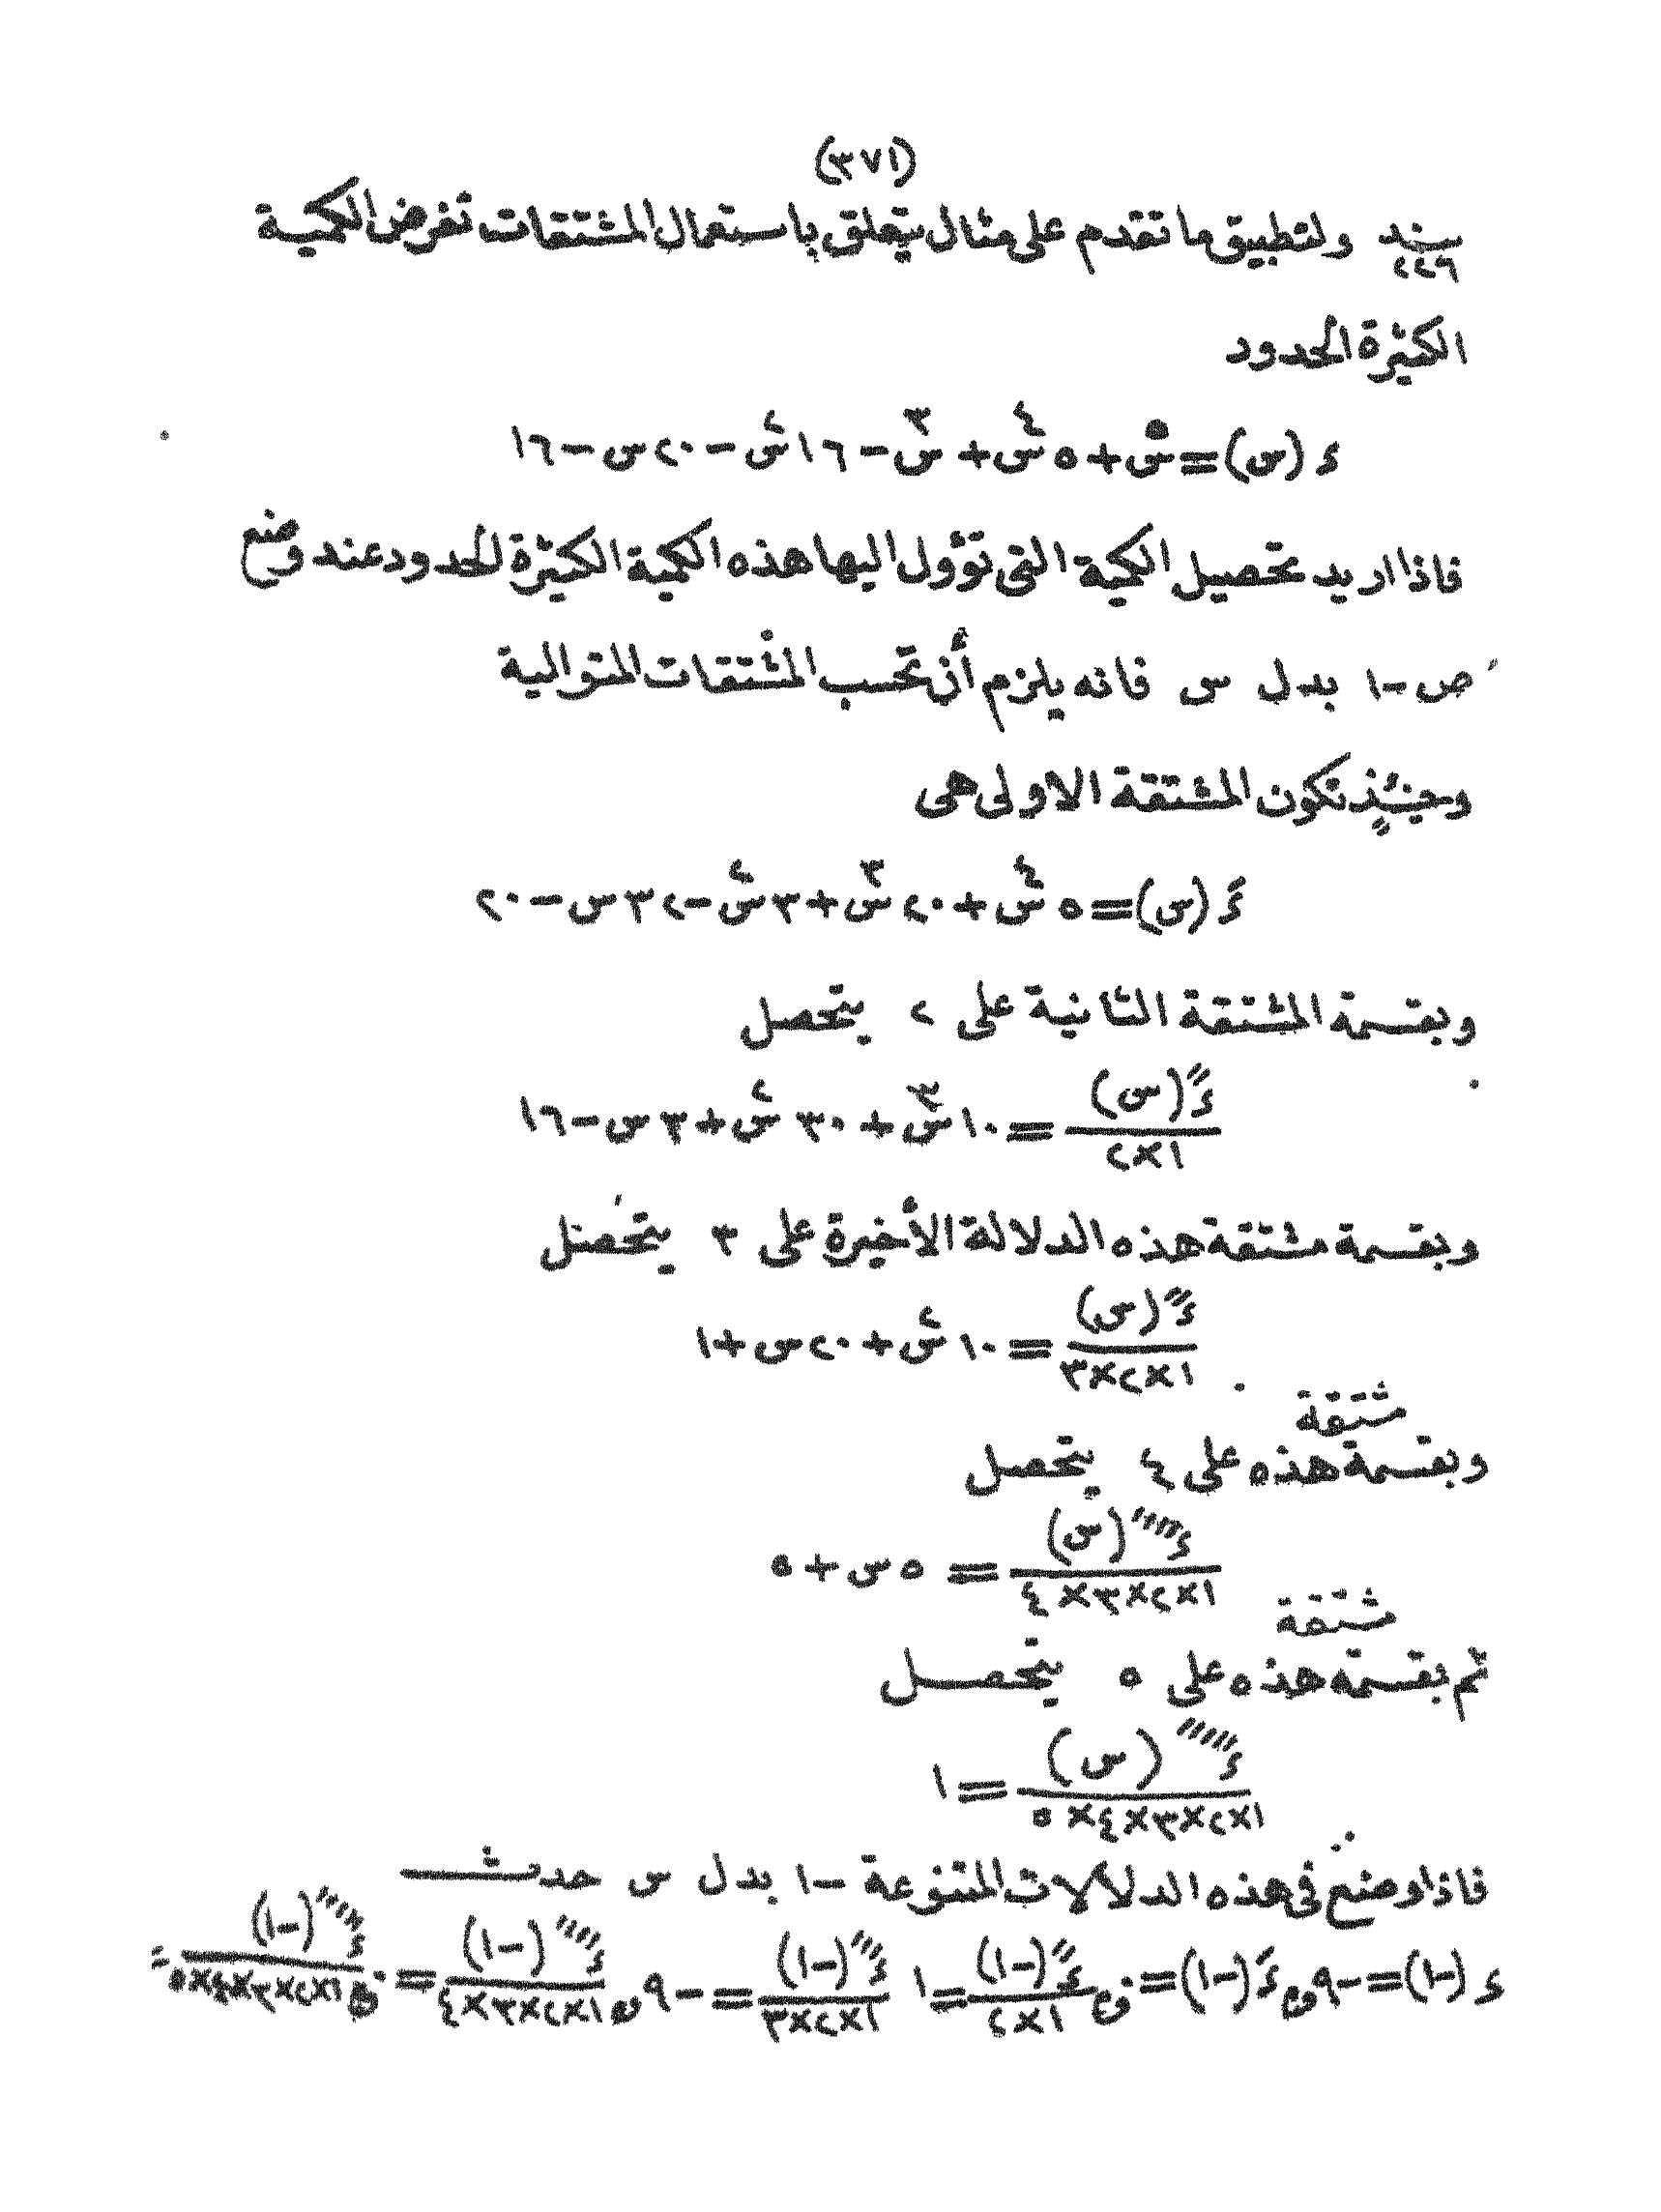 (٣٧١)
بند ٢٢٦ ولتطبيق ما تقدم على مثال يتعلق باستعمال المشتقات تفرض الكمية
الكثيرة الحدود
ء (س) = س^٥ + ٥ س^٤ + س^٣ - ١٦ س^٢ - ٢٠ س - ١٦
فاذا اريد تحصيل الكمية التى تؤول اليها هذه الكمية الكثيرة الحدود عند وضع
ص - ١ بدل س فانه يلزم أن تحسب المشتقات المتوالية
وحينئذٍ تكون المشتقة الاولى هى
ءَ (س) = ٥ س^٤ + ٢٠ س^٣ + ٣ س^٢ - ٣٢ س - ٢٠
وبقسمة المشتقة الثانية على ٢ يتحصل
ء″(س) / ١×٢ = ١٠ س^٣ + ٣٠ س^٢ + ٣ س - ١٦
وبقسمة مشتقة هذه الدلالة الأخيرة على ٣ يتحصل
ء‴(س) / ١×٢×٣ = ١٠ س^٢ + ٢٠ س + ١
مشتقة
وبقسمة هذه على ٤ يتحصل
ء⁗(س) / ١×٢×٣×٤ = ٥ س + ٥
مشتقة
ثم بقسمة هذه على ٥ يتحصل
ء′′′′′(س) / ١×٢×٣×٤×٥ = ١
فاذا وضع فى هذه الدلالات المتنوعة - ١ بدل س حدث
ء (-١) = -٩ و ءَ (-١) = ٠ و ء″(-١) / ١×٢ = ١ ء‴(-١) / ١×٢×٣ = -٩ و ء⁗(-١) / ١×٢×٣×٤ = ٠ و ء′′′′′(-١) / ١×٢×٣×٤×٥ =